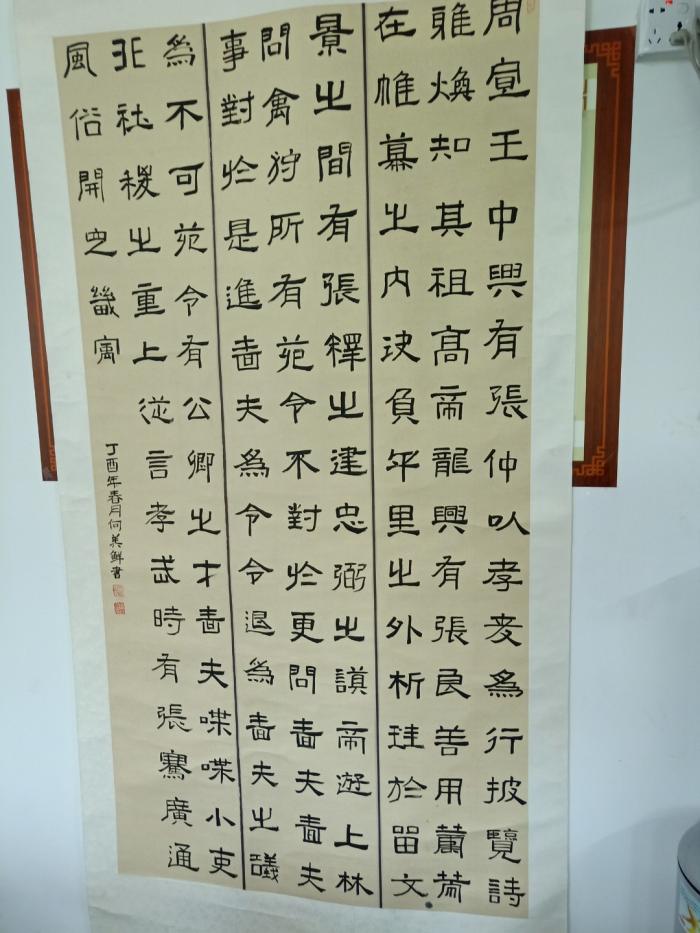 周宣王中興有張仲以孝友為行披覽詩
雅煥知其祖高帝龍興有張良善用籌策
在帷幕之内決負千里之外析珪於留文
景之間有張釋之建忠弼之謨帝遊上林
問禽狩所有苑令不對於更問嗇夫嗇夫
事對於是進嗇夫為令令退為嗇夫之議
為不可苑令有公卿之才嗇夫喋喋小吏
非社稷之重上從言孝武時有張騫廣通
風俗開定畿寓
丁酉年春月何美鮮書